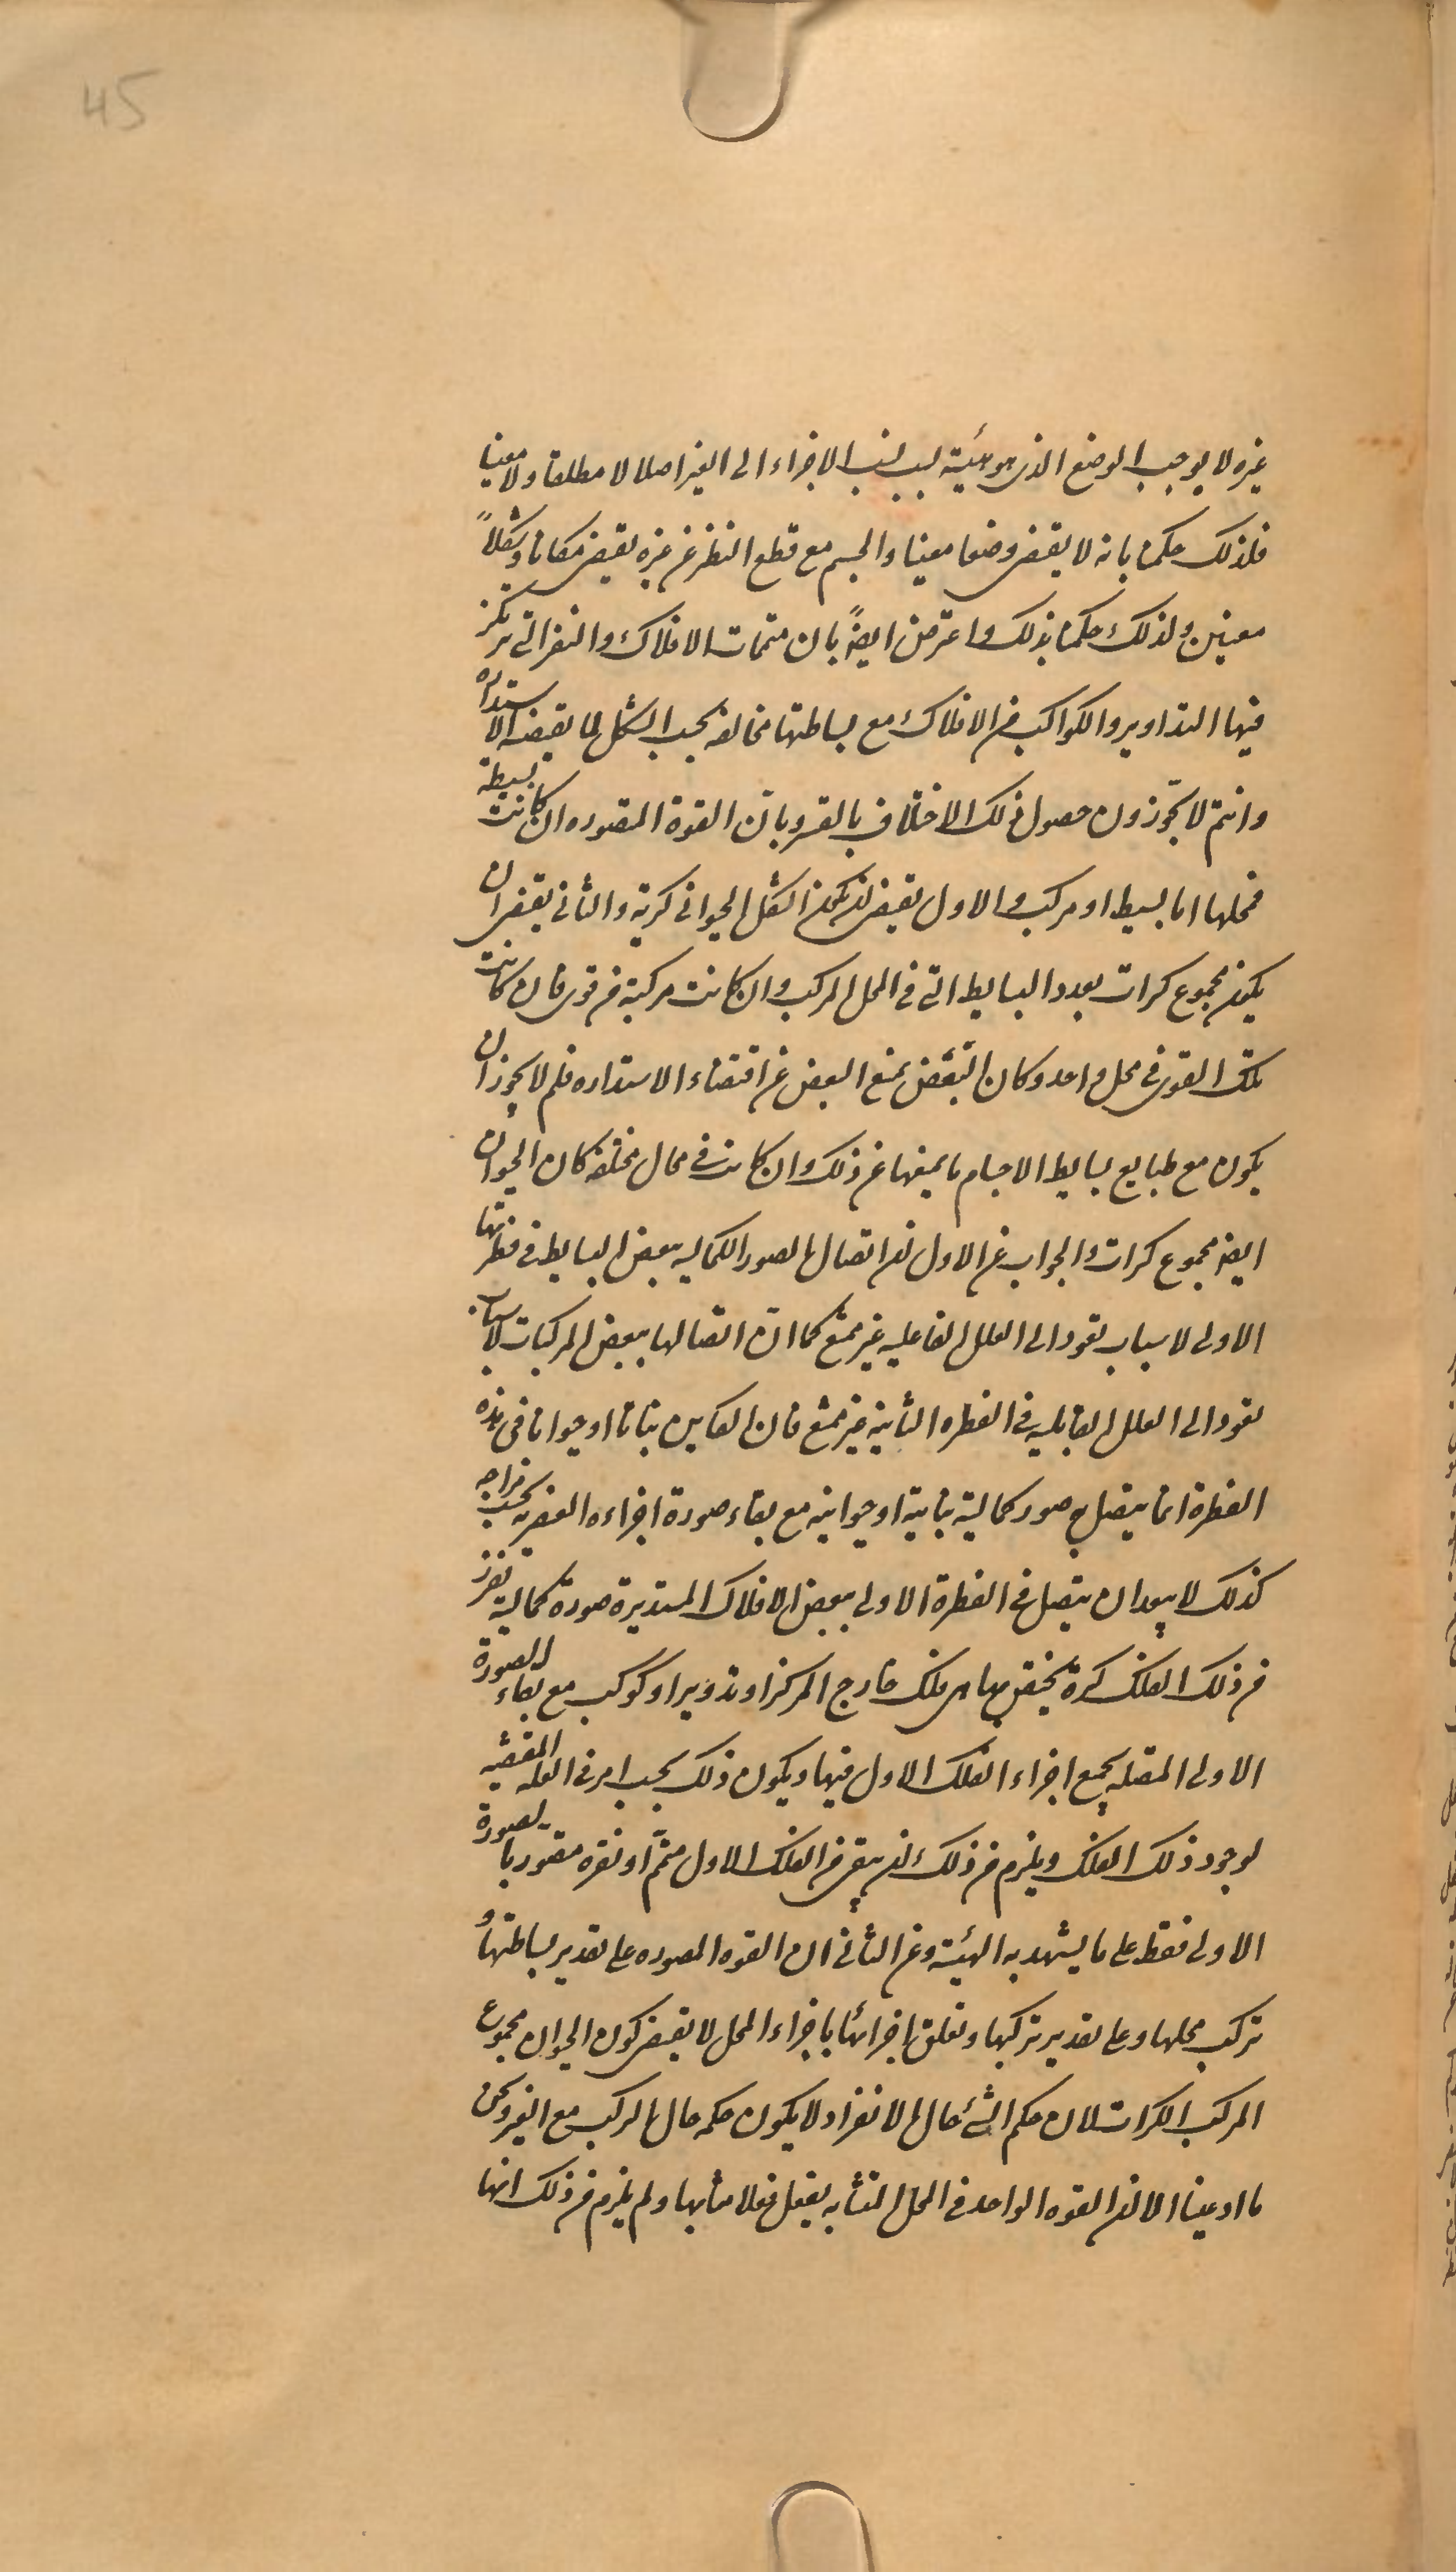 45
غيره لا يوجب الوضع الذى هو هيئة بسبب نسب الاجزاء الى الغير اصلا لا مطلقا ولا معينا
فلذلك حكمنا بانه لا يقتضى وضعا معينا والجسم مع قطع النظر عن غيره يقتضى مكانا وشكلاً
معينين ولذلك حكمنا بذلك واعترض ايضاً بان متممات الافلاك والنقر التى تركز
فيها التداوير والكواكب من الافلاك مع بساطتها مخالفه بحسب الشكل لما يقتضيه الاستداره
وانتم لا تجوّزون حصول ذلك الاختلاف بالقسر وبانّ القوة المصوره ان كانت بسيطة
فمحلها اما بسيط او مركب والاول يقتضى ان يكون الشكل الحيوانى كرية والثانى يقتضى ان
يكون مجموع كرات بعدد البسايط التى فى المحل المركب وان كانت مركبة من قوى فان كانت
تلك القوى فى محل واحد وكان البعض يمنع البعض عن اقتضاء الاستداره فلم لا يجوز ان
يكون مع طبايع بسايط الاجسام ما يمنعها عن ذلك وان كانت فى محال مختلفه كان الحيوان
ايضا مجموع كرات والجواب عن الاول ان اتصال الصور الكماليه ببعض البسايط فى فطرتها
الاولى لاسباب تعود الى العلل الفاعليه غير ممتنع كما انّ اتصالها ببعض المركبات لاسباب
تعود الى العلل القابليه فى الفطره الثانية غير ممتنع فان الكاين نباتا او حيوانا فى هذه
الفطرة انما يتصل به صور كمالية نباتية او حيوانيه مع بقاء صورة اجزاءه العنصريه بحسب مزاجه
كذلك لا يبعد ان يتصل فى الفطرة الاولى ببعض الافلاك المستديرة صورة كمالية تفرز
من ذلك الفلك كرة يختص بها هى فلك خارج المركز او تدوير او كوكب مع بقاء الصورة
الاولى المتصله بجميع اجزاء الفلك الاول فيها ويكون ذلك بحسب امر فى العله المقتضيه
لوجود ذلك الفلك ويلزم من ذلك ان يبقى من الفلك الاول متمّم او نقره متصور بالصورة
الاولى فقط على ما يشهد به الهيئة وعن الثانى ان القوه المصوره على تقدير بساطتها و
تركب محلها وعلى تقدير تركبها وتعلق اجزائها باجزاء المحل لا يقتضى كون الحيوان مجموع
المركب الكرات لان حكم الشئ حال الانفراد لا يكون حكمه حال التركيب مع الغير ونحن
ما ادعينا الا ان القوه الواحده فى المحل المتشابه يفعل فعلا متشابها ولم يلزم من ذلك انها